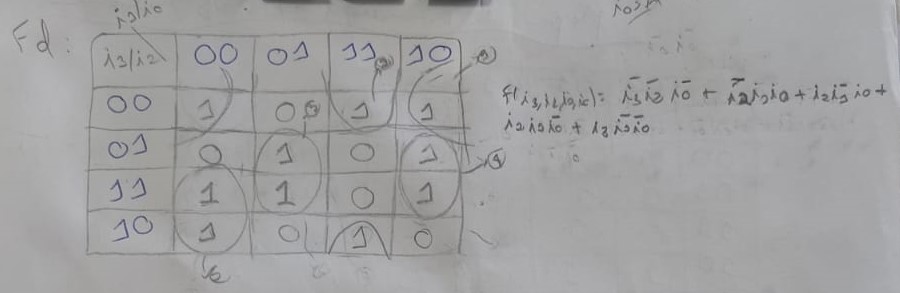 i1/i0
Fd:
i3/i2 00 01 11 10
00 1 0 1 1
01 0 1 0 1
11 1 1 0 1
10 1 0 1 0
F(i3,i2,i1,i0)= i̅3 i̅2 i̅0 + i̅2 i1 i0 + i2 i̅1 i0 +
i2 i1 i̅0 + i3 i̅1 i̅0